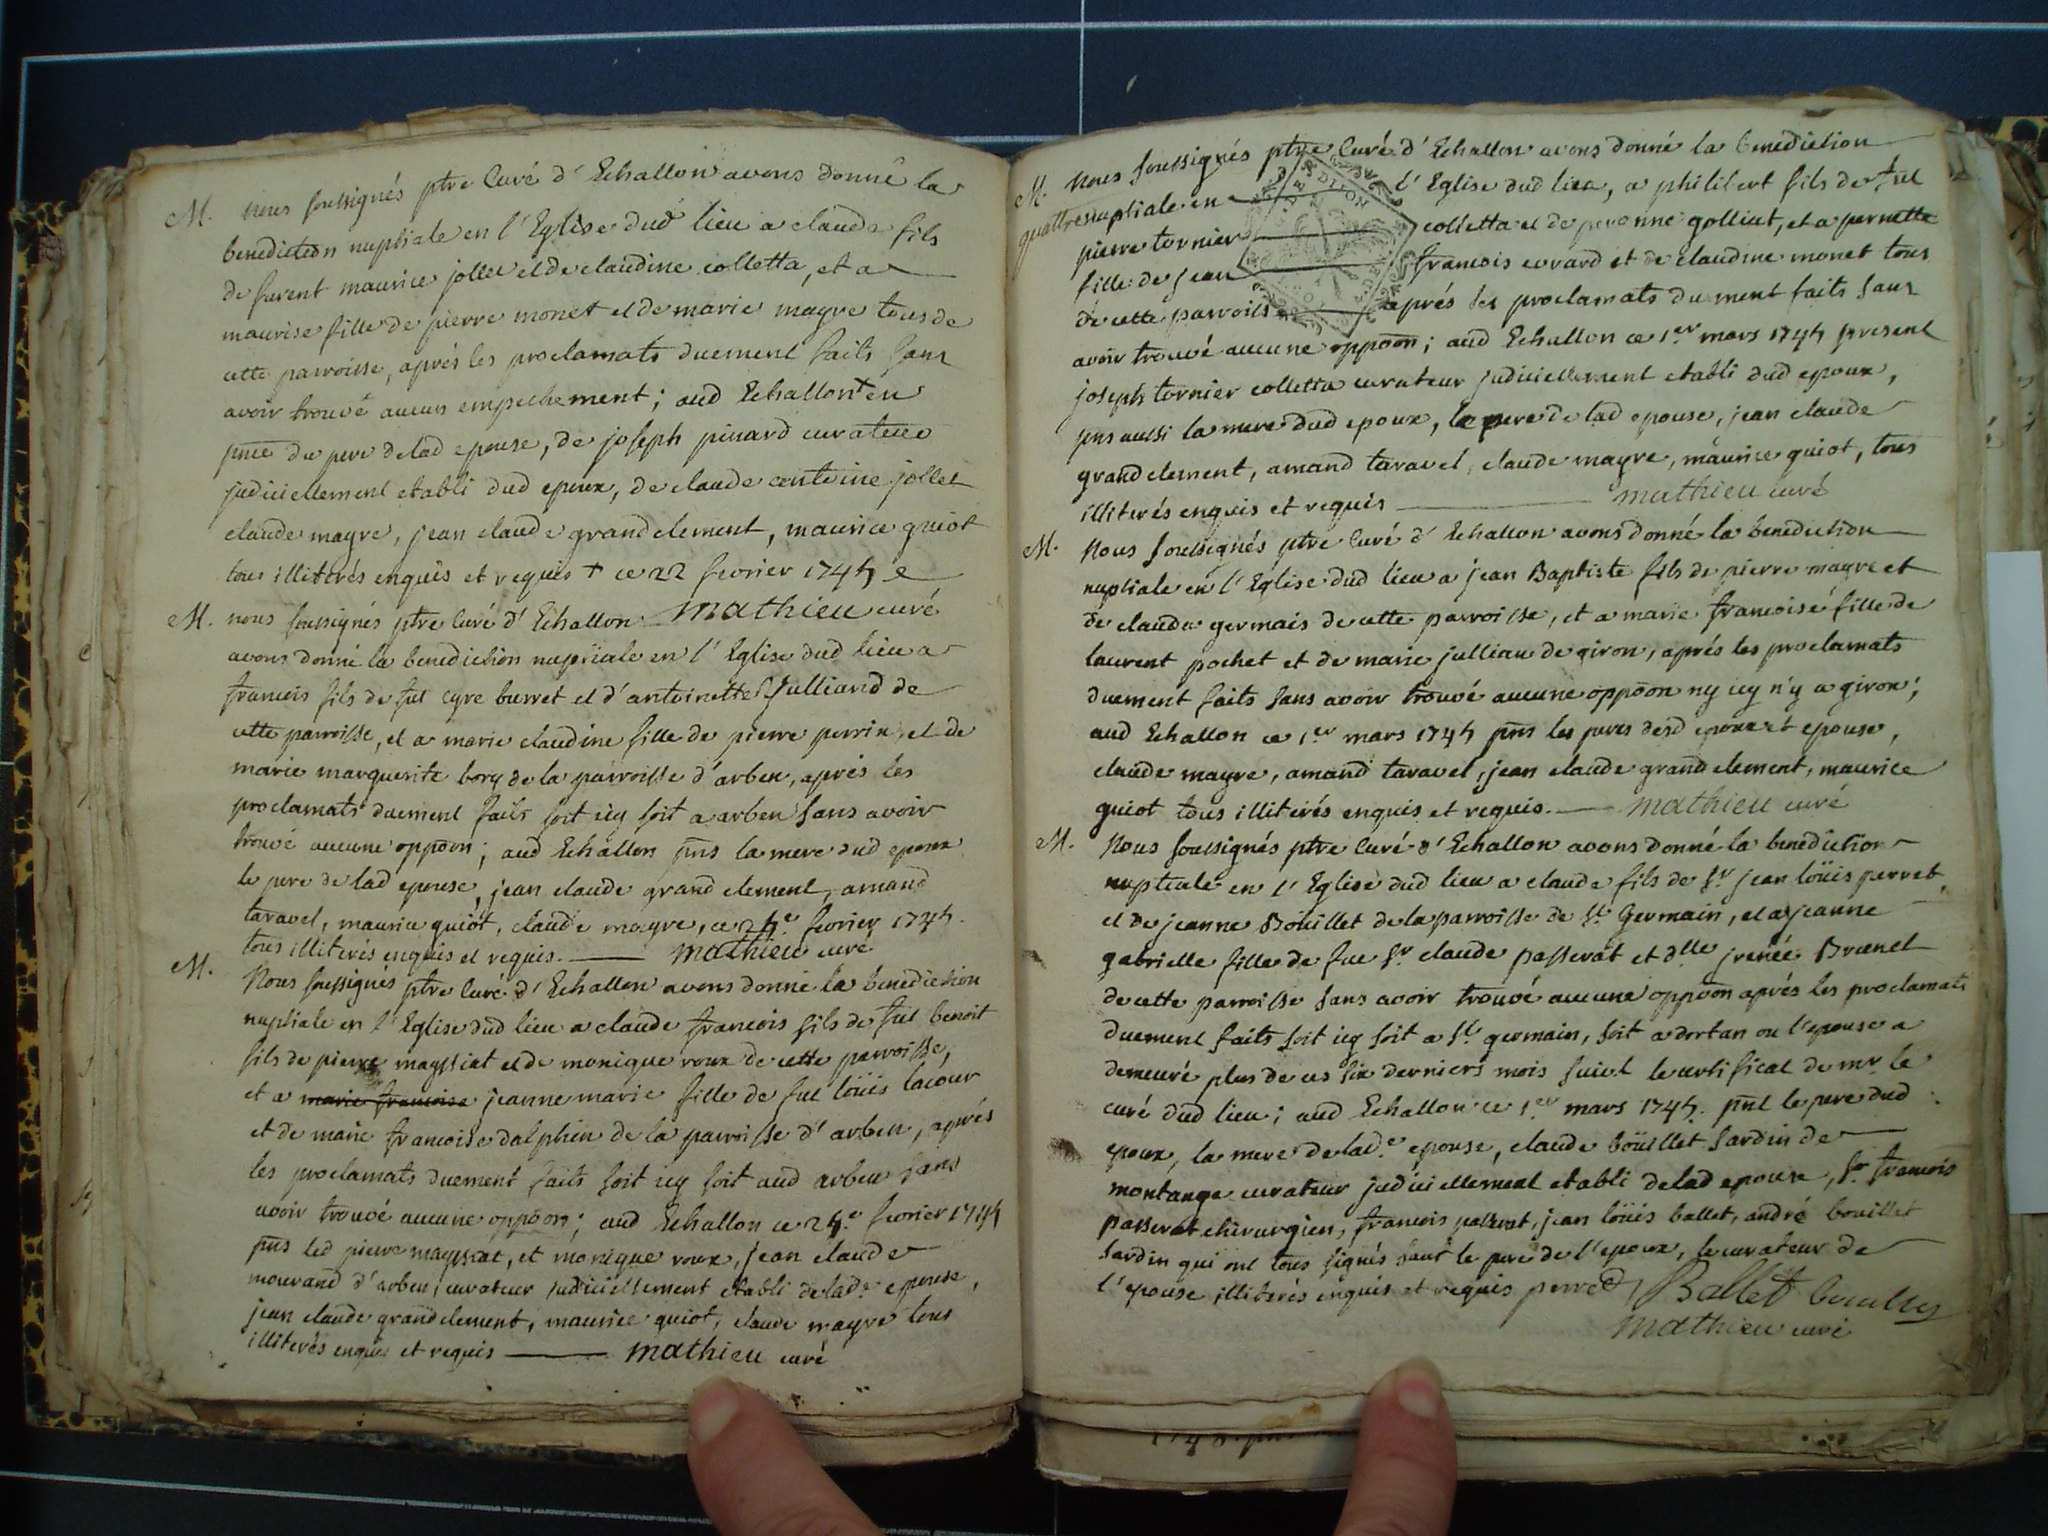 M. Nous soussignés ptre Curé d'Echallon avons donné la
benediction nuptiale en l'Eglise dud lieu a claude fils
de furent maurice jollet et de claudine colletta, et a
maurise fille de pierre monet et de marie mayre tous de
cette parroisse, aprés les proclamats duement faits sans
avoir trouvé aucun empechement; aud Echallon + en
pnce du pere de lad epouse, de joseph pinard curateur
judiciellement etabli dud epoux, de claude jollet
claude mayre, jean claude grandclement, maurice guiot
tous illiterés enquis et requis + ce 22 fevrier 1745
M. nous soussignés ptre Curé d'Echallon mathieu curé
avons donné la benediction nuptiale en l'Eglise dud lieu a
francois fils de fut cyre burret et d'antoinette Julliard de
cette parroisse, et a marie claudine fille de pierre perrin et de
marie marguerite bory de la parroisse d'arben, aprés les
proclamats duement faits soit icy soit a arben sans avoir
trouvé aucune oppoon; aud Echallon pns la mere dud epoux
le pere de lad epouse, jean claude grand clement, amand
taravel, maurice guiot, claude mayre, ce 24e fevrier 1745.
tous illiterés enquis et requis. mathieu curé
M. Nous soussignés ptre Curé d'Echallon avons donné la benediction
nuptiale en l'Eglise dud lieu a claude francois fils de fut benoit
fils de pierre mayssiat et de monique roux de cette parroisse,
et a marie francoise jeanne marie fille de fut loüis lacour
et de marie francoise dalphin de la parroisse d'arben, aprés
les proclamats duement faits soit icy soit aud arben sans
avoir trouvé aucune oppoon; aud Echallon ce 24e fevrier 1745
pns led pierre mayssiat, et monique roux, jean claude
mourand d'arben, curateur judiciellement etabli de lade epouse,
jean claude grandclement, maurice guiot, claude mayre tous
illiterés enquis et requis mathieu curé
M. Nous soussignés ptre Curé d'Echallon avons donné la benediction
nuptiale en l'Eglise dud lieu, a philibert fils de fut
pierre tornier colletta et de peronne golliut, et a pernette
fille de jean francois evrard et de claudine monet tous
de cette parroisse aprés les proclamats duement faits sans
avoir trouvé aucune oppoon; aud Echallon ce 1er mars 1745 present
joseph tornier colletta curateur judiciellement etabli dud epoux,
pns aussi la mere dud epoux, le pere de lad epouse, jean claude
grandclement, amand taravel, claude mayre, maurice guiot, tous
illiterés enquis et requis mathieu curé
M. Nous soussignés ptre Curé d'Echallon avons donné la benediction
nuptiale en l'Eglise dud lieu a jean Baptiste fils de pierre mayre et
de claudu germais de cette parroisse, et a marie francoise fille de
laurent pochet et de marie julliau de giron, aprés les proclamats
duement faits sans avoir trouvé aucune oppoon ny icy n'y a giron;
aud Echallon ce 1er mars 1745 pns les peres desd epoux et epouse,
claude mayre, amand taravel, jean claude grand clement, maurice
guiot tous illiterés enquis et requis. mathieu curé
M. Nous soussignés ptre Curé d'Echallon avons donné la benediction
nuptiale en l'Eglise dud lieu a claude fils de Sr jean loüis perret,
et de jeanne Boüillet de la parroisse de St Germain, et a jeanne
gabrielle fille de fue Sr claude passerat et dlle jrenée Brunet
de cette parroisse sans avoir trouvé aucune oppoon aprés les proclamats
duement faits soit icy soit a St germain, soit a dortan ou l'epouse a
demeuré plus de ces six derniers mois suivt le certificat de mr le
curé dud lieu; aud Echallon ce 1er mars 1745. pnt le pere dud
epoux, la mere de lade epouse, claude boüillet sardin de
montange curateur judiciellement etabli de lad epouse, Sr francois
passerat chirurgien, francois passerat, jean loüis ballet, andré bouillet
sardin qui ont tous signés sauf le pere de l'epoux, le curateur de
l'epouse illiterés enquis et requis perret Ballet
mathieu curé